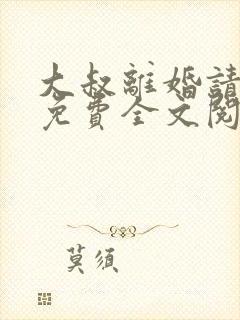 大叔離婚請
免費全文閱
莫須